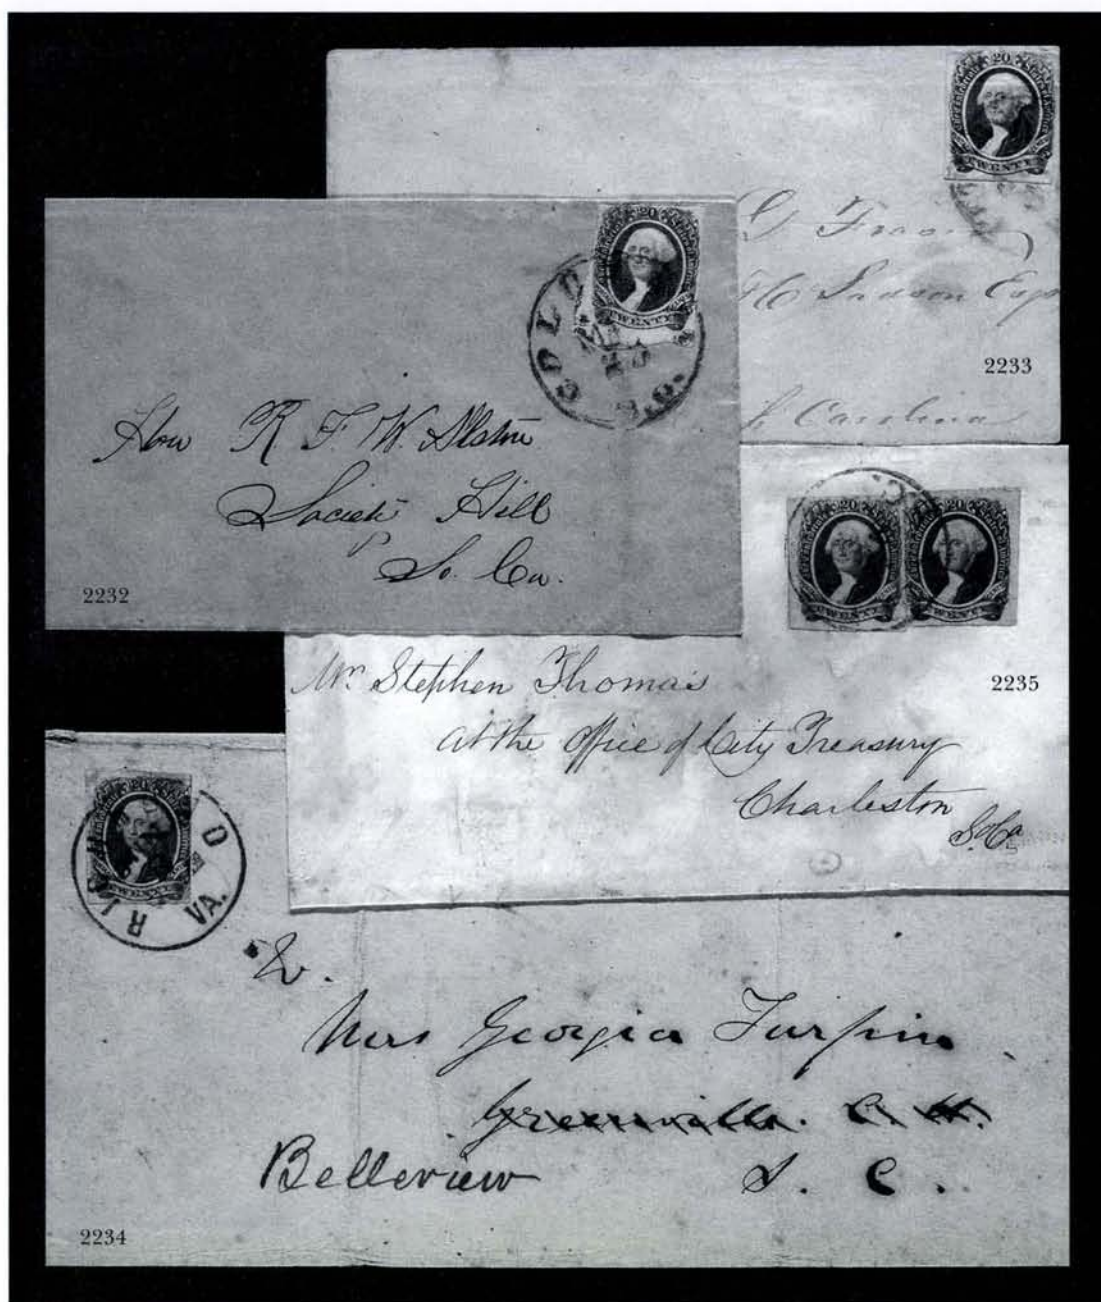 20
TWENTY
G
Esqr
2233
S. Carolina
20
TWENTY
COL
S.C.
Hon R. F. W. Allston
Society Hill
So. Ca.
2232
20 20
TWENTY TWENTY
2235
Mr. Stephen Thomas
at the Office of City Treasury
Charleston
So Ca
20
TWENTY
RICH D
VA.
Mrs Georgia Turpin
Greenville. C. H.
Belleview S. C.
2234